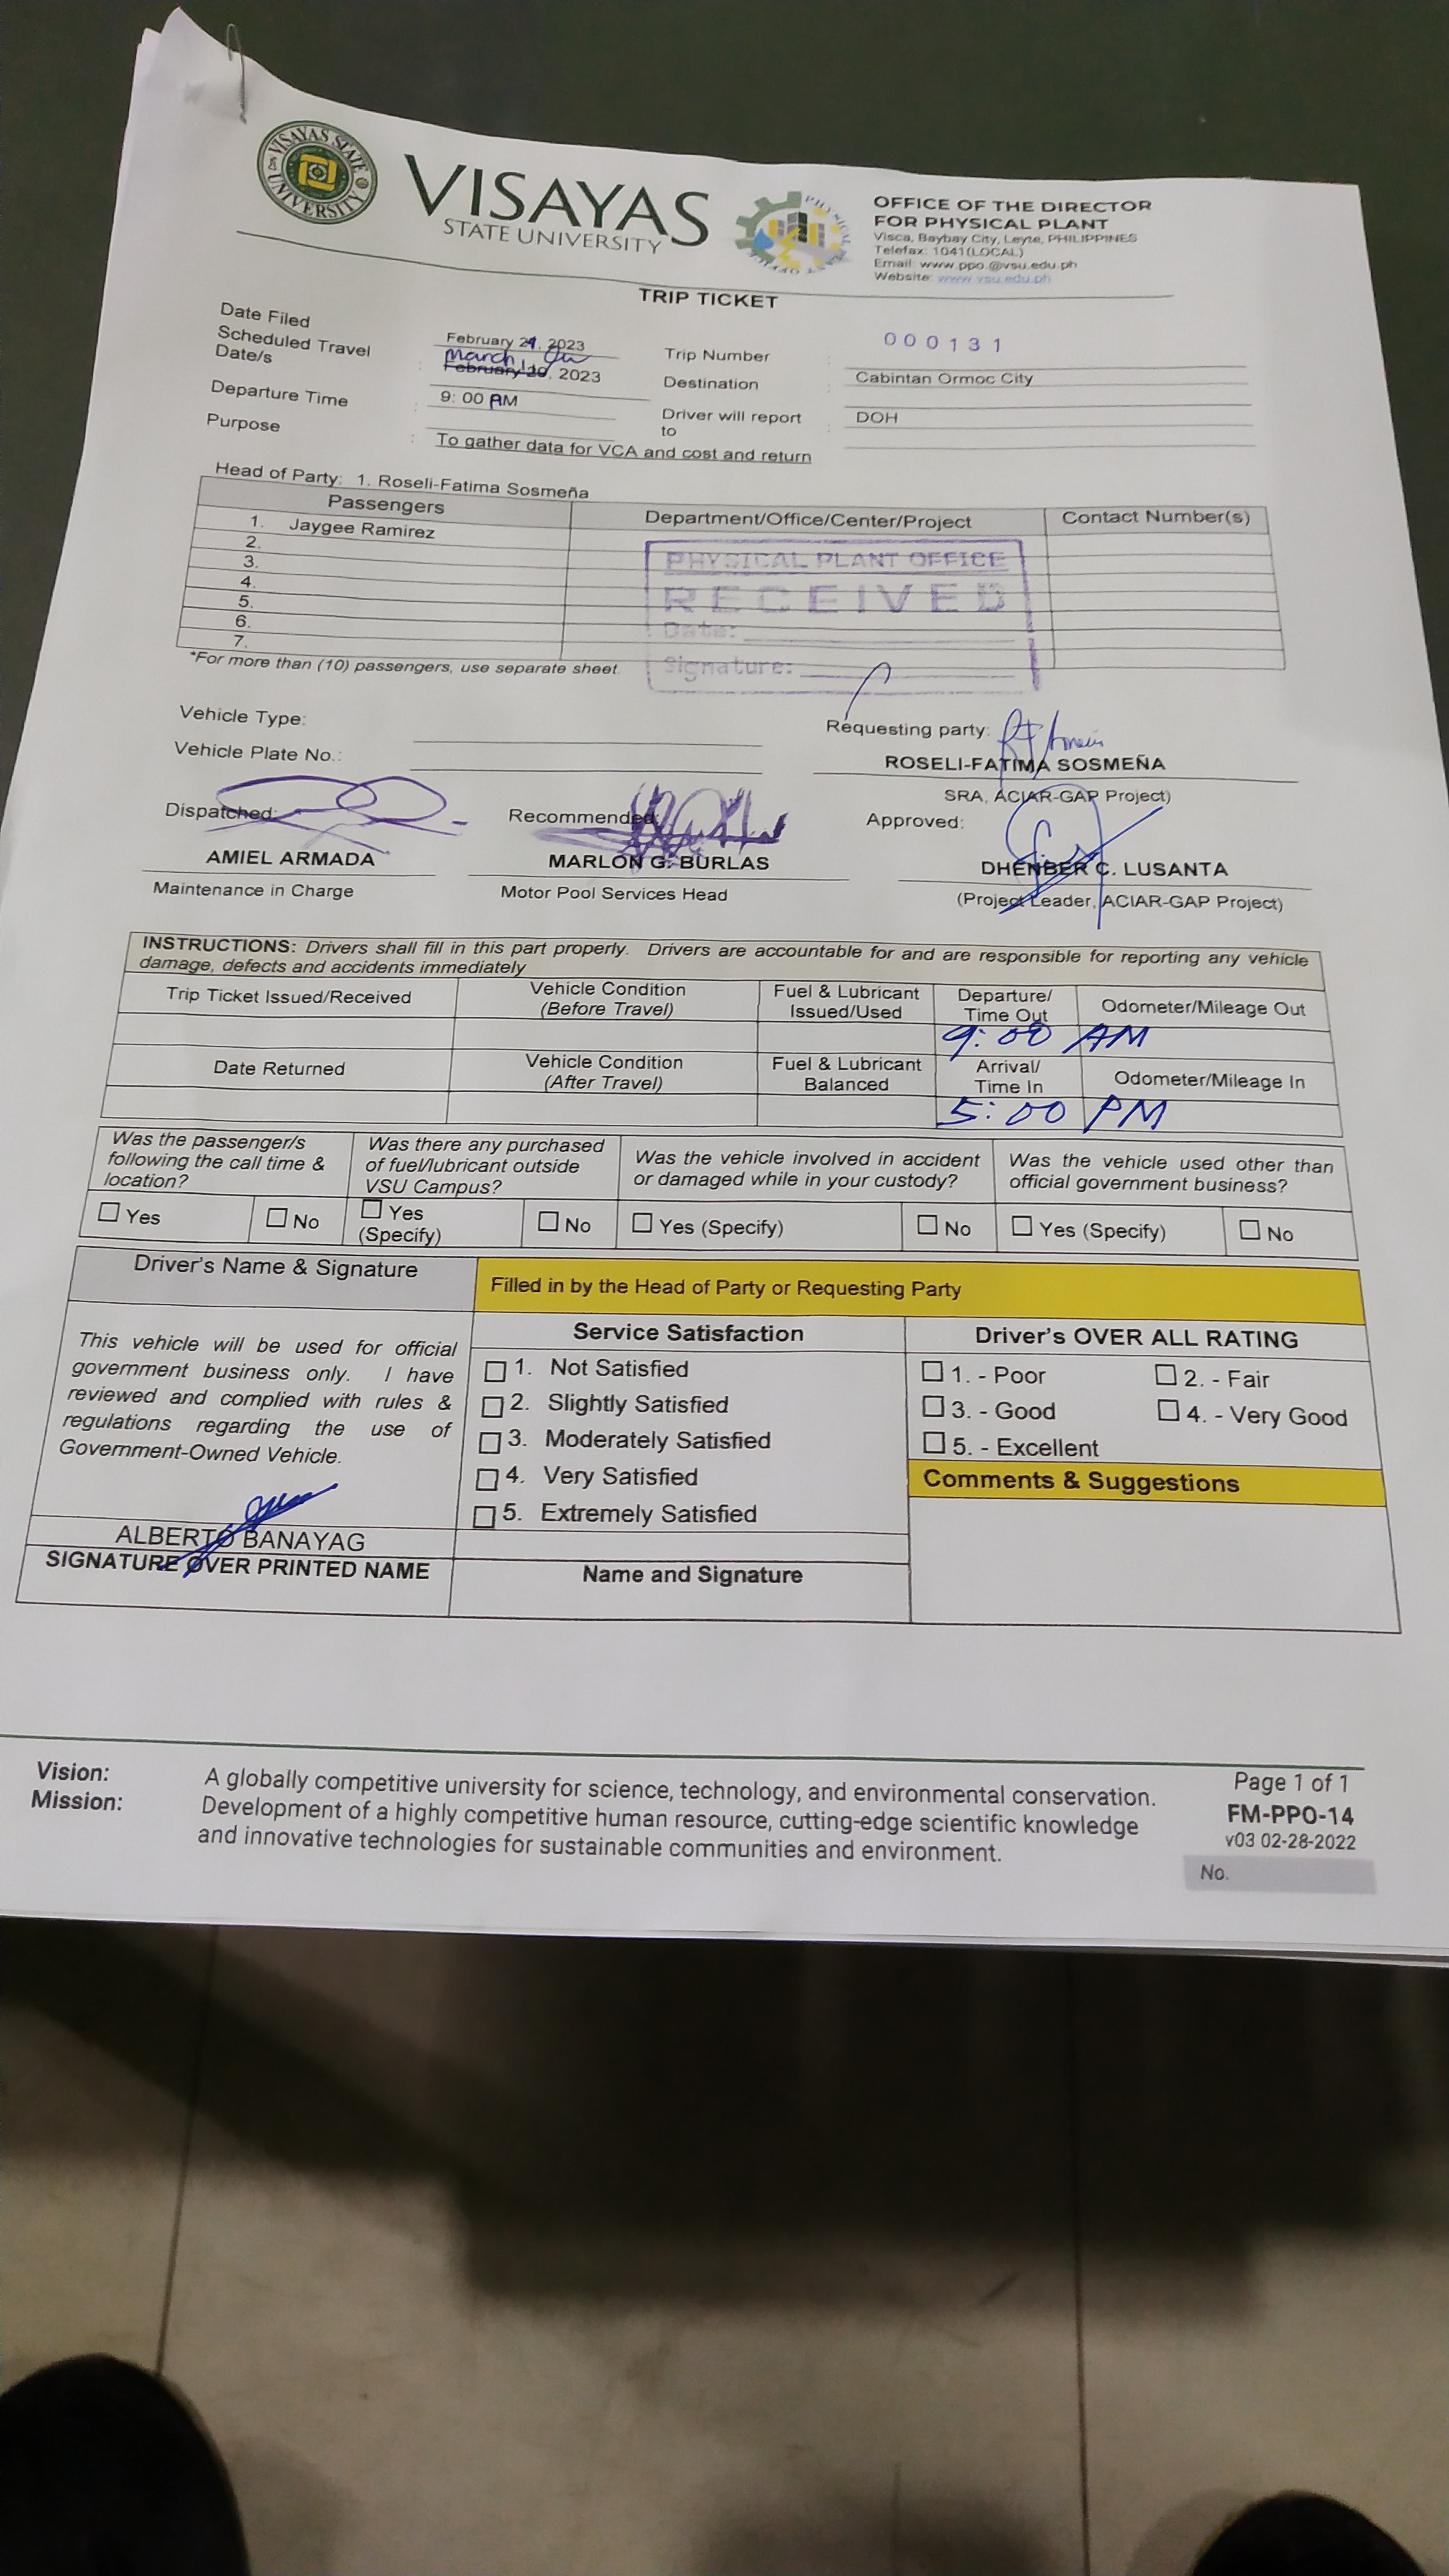 VISAYAS STATE UNIVERSITY
VISAYAS
STATE UNIVERSITY
OFFICE OF THE DIRECTOR
FOR PHYSICAL PLANT
Visca, Baybay City, Leyte, PHILIPPINES
Telefax: 1041(LOCAL)
Email: www.ppo.@vsu.edu.ph
Website: www.vsu.edu.ph
TRIP TICKET
Date Filed February 24, 2023 Trip Number 000131
Scheduled Travel Date/s : March 1, February 20, 2023 Destination Cabintan Ormoc City
Departure Time : 9: 00 AM Driver will report to : DOH
Purpose : To gather data for VCA and cost and return
Head of Party: 1. Roseli-Fatima Sosmeña
Passengers Department/Office/Center/Project Contact Number(s)
1. Jaygee Ramirez
2.
3.
4.
5.
6.
7.
PHYSICAL PLANT OFFICE
RECEIVED
Date:
Signature:
*For more than (10) passengers, use separate sheet.
Vehicle Type: Requesting party:
Vehicle Plate No.: ROSELI-FATIMA SOSMEÑA
SRA, ACIAR-GAP Project)
Dispatched: Recommended: Approved:
AMIEL ARMADA MARLON G. BURLAS DHENBER C. LUSANTA
Maintenance in Charge Motor Pool Services Head (Project Leader, ACIAR-GAP Project)
INSTRUCTIONS: Drivers shall fill in this part properly. Drivers are accountable for and are responsible for reporting any vehicle
damage, defects and accidents immediately
Trip Ticket Issued/Received Vehicle Condition (Before Travel) Fuel & Lubricant Issued/Used Departure/ Time Out Odometer/Mileage Out
9:00 AM
Date Returned Vehicle Condition (After Travel) Fuel & Lubricant Balanced Arrival/ Time In Odometer/Mileage In
5:00 PM
Was the passenger/s following the call time & location? Was there any purchased of fuel/lubricant outside VSU Campus? Was the vehicle involved in accident or damaged while in your custody? Was the vehicle used other than official government business?
Yes No Yes (Specify) No Yes (Specify) No Yes (Specify) No
Driver's Name & Signature Filled in by the Head of Party or Requesting Party
This vehicle will be used for official
government business only. I have
reviewed and complied with rules &
regulations regarding the use of
Government-Owned Vehicle.
ALBERTO BANAYAG
SIGNATURE OVER PRINTED NAME
Service Satisfaction
1. Not Satisfied
2. Slightly Satisfied
3. Moderately Satisfied
4. Very Satisfied
5. Extremely Satisfied
Name and Signature
Driver's OVER ALL RATING
1. - Poor 2. - Fair
3. - Good 4. - Very Good
5. - Excellent
Comments & Suggestions
Vision: A globally competitive university for science, technology, and environmental conservation.
Mission: Development of a highly competitive human resource, cutting-edge scientific knowledge
and innovative technologies for sustainable communities and environment.
Page 1 of 1
FM-PPO-14
v03 02-28-2022
No.